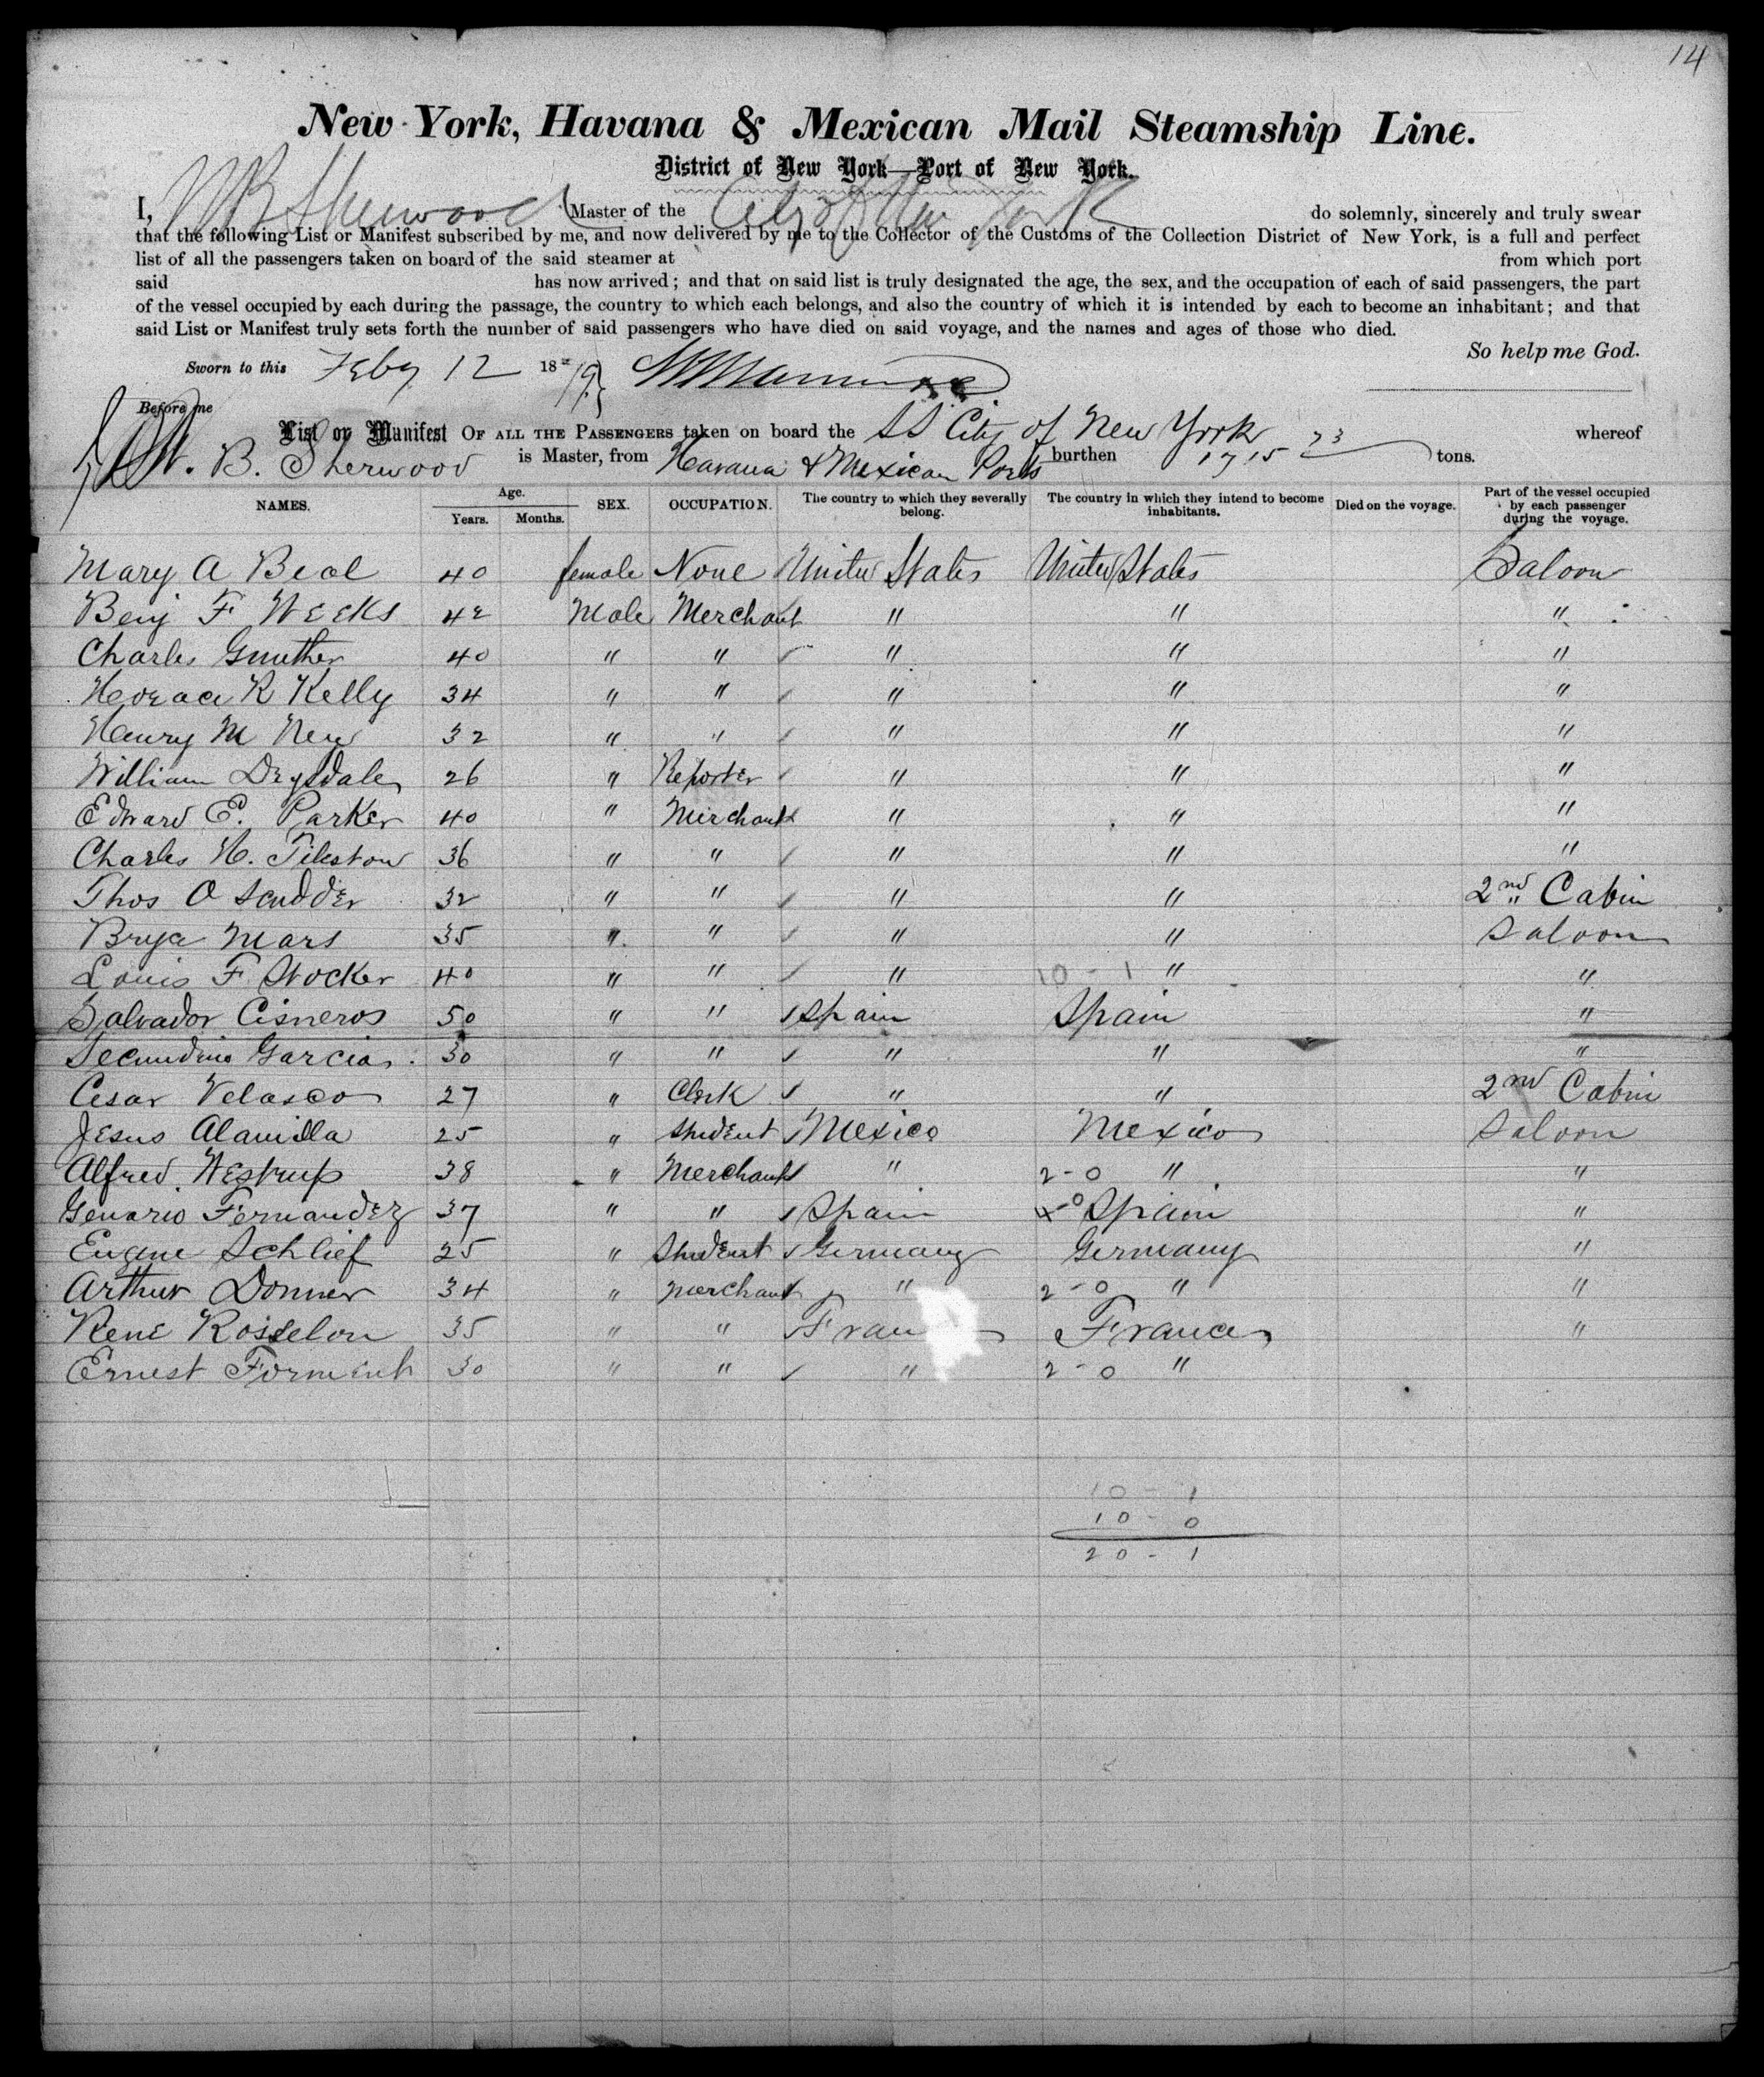 14
New York, Havana & Mexican Mail Steamship Line.
District of New York—Port of New York.
I, W B Sherwood Master of the City of New York do solemnly, sincerely and truly swear
that the following List or Manifest subscribed by me, and now delivered by me to the Collector of the Customs of the Collection District of New York, is a full and perfect
list of all the passengers taken on board of the said steamer at from which port
said has now arrived; and that on said list is truly designated the age, the sex, and the occupation of each of said passengers, the part
of the vessel occupied by each during the passage, the country to which each belongs, and also the country of which it is intended by each to become an inhabitant; and that
said List or Manifest truly sets forth the number of said passengers who have died on said voyage, and the names and ages of those who died.
So help me God.
Sworn to this Feby 12 1879
Before me
List or Manifest OF ALL THE PASSENGERS taken on board the SS City of New York whereof
W. B. Sherwood is Master, from Havana & Mexican Ports burthen 1715 23 tons.
NAMES. Age. Years. Months. SEX. OCCUPATION. The country to which they severally belong. The country in which they intend to become inhabitants. Died on the voyage. Part of the vessel occupied by each passenger during the voyage.
Mary A Beal 40 female None United States United States Saloon
Benj F Weeks 42 Male Merchant " " "
Charles Gunther 40 " " " " "
Horace R Kelly 34 " " " " "
Henry M New 32 " " " " "
William Drysdale 26 " Reporter " " "
Edward E. Parker 40 " Merchant " " "
Charles H. Tileston 36 " " " " "
Thos O Scudder 32 " " " " 2nd Cabin
Brya Mars 35 " " " " Saloon
Louis F Stocker 40 " " " 10 - 1 " "
Salvador Cisneros 50 " " Spain Spain "
Secundino Garcia 30 " " " " "
Cesar Velasco 27 " Clerk " " 2nd Cabin
Jesus Alamilla 25 " Student Mexico Mexico Saloon
Alfred Westrup 38 " Merchant " 2 - 0 " "
Genario Fernandez 37 " " Spain 4-0 Spain "
Eugene Schlief 25 " Student Germany Germany "
Arthur Donner 34 " Merchant " 2 - 0 " "
Rene Rosselon 35 " " Fran France "
Ernest Forment 30 " " " 2 - 0 "
10 - 1
10 - 0
20 - 1